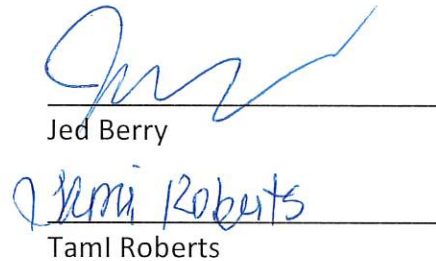 Jed Berry
Tami Roberts
TamI Roberts